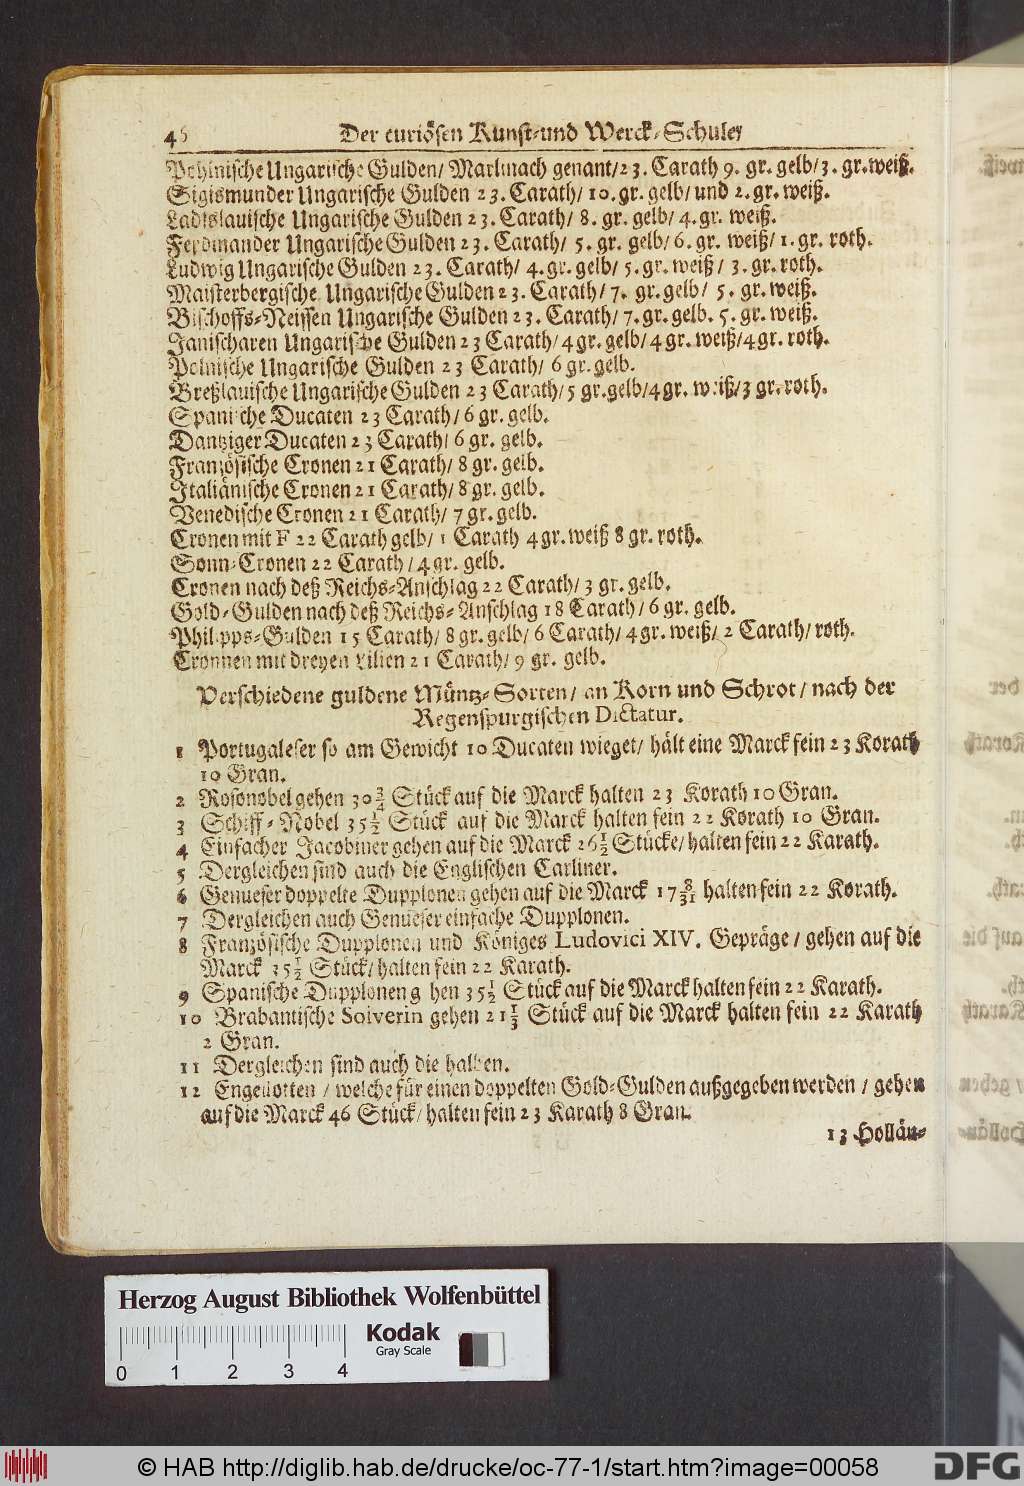 46 Der curiösen Kunst-und Werck-Schule/
Pohlnische Ungarische Gulden/ Marlmach genant/23. Carath 9. gr. gelb/3. gr. weiß.
Sigismunder Ungarische Gulden 23. Carath/ 10. gr. gelb/ und 2. gr. weiß.
Ladislauische Ungarische Gulden 23. Carath/ 8. gr. gelb/ 4. gr. weiß.
Ferdinander Ungarische Gulden 23. Carath/ 5. gr. gelb/ 6. gr. weiß/ 1. gr. roth.
Ludwig Ungarische Gulden 23. Carath/ 4. gr. gelb/ 5. gr. weiß/ 3. gr. roth.
Maisterbergische Ungarische Gulden 23. Carath/ 7. gr. gelb/ 5. gr. weiß.
Bischoffs-Neissen Ungarische Gulden 23. Carath/ 7. gr. gelb. 5. gr. weiß.
Janischaren Ungarische Gulden 23 Carath/ 4 gr. gelb/ 4 gr. weiß/4 gr. roth.
Polnische Ungarische Gulden 23 Carath/ 6 gr. gelb.
Breßlauische Ungarische Gulden 23 Carath/ 5 gr. gelb/4 gr. weiß/3 gr. roth.
Spanische Ducaten 23 Carath/ 6 gr. gelb.
Dantziger Ducaten 23 Carath/ 6 gr. gelb.
Französische Cronen 21 Carath/ 8 gr. gelb.
Italiänische Cronen 21 Carath/ 8 gr. gelb.
Venedische Cronen 21 Carath/ 7 gr. gelb.
Cronen mit F 22 Carath gelb/ 1 Carath 4 gr. weiß 8 gr. roth.
Sonn-Cronen 22 Carath/ 4 gr. gelb.
Cronen nach deß Reichs-Anschlag 22 Carath/ 3 gr. gelb.
Gold-Gulden nach deß Reichs-Anschlag 18 Carath/ 6 gr. gelb.
Philipps-Gulden 15 Carath/ 8 gr. gelb/ 6 Carath/ 4 gr. weiß/ 2 Carath/ roth.
Cronnen mit dreyen Lilien 21 Carath/ 9 gr. gelb.
Verschiedene guldene Müntz-Sorten/ an Korn und Schrot/ nach der
Regenspurgischen Dictatur.
1 Portugaleser so am Gewicht 10 Ducaten wieget/ hält eine Marck fein 23 Korath
10 Gran.
2 Rosonobel gehen 30 3/4 Stück auf die Marck halten 23 Korath 10 Gran.
3 Schiff-Nobel 35 1/2 Stück auf die Marck halten fein 22 Korath 10 Gran.
4 Einfacher Jacobiner gehen auf die Marck 26 1/2 Stücke/ halten fein 22 Karath.
5 Dergleichen sind auch die Englischen Carliner.
6 Genueser doppelte Dupplonen gehen auf die Marck 17 8/31 halten fein 22 Korath.
7 Dergleichen auch Genueser einfache Dupplonen.
8 Französische Dupplonen und Königes Ludovici XIV. Gepräge/ gehen auf die
Marck 35 1/2 Stück/ halten fein 22 Karath.
9 Spanische Dupplonen g hen 35 1/2 Stück auf die Marck halten fein 22 Karath.
10 Brabantische Solverin gehen 21 1/3 Stück auf die Marck halten fein 22 Karath
2 Gran.
11 Dergleichen sind auch die halben.
12 Engelotten/ welche für einen doppelten Gold-Gulden außgegeben werden/ gehen
auf die Marck 46 Stück/ halten fein 23 Karath 8 Gran.
13 Hollän-
Herzog August Bibliothek Wolfenbüttel
Kodak
Gray Scale
0 1 2 3 4
© HAB http://diglib.hab.de/drucke/oc-77-1/start.htm?image=00058
DFG